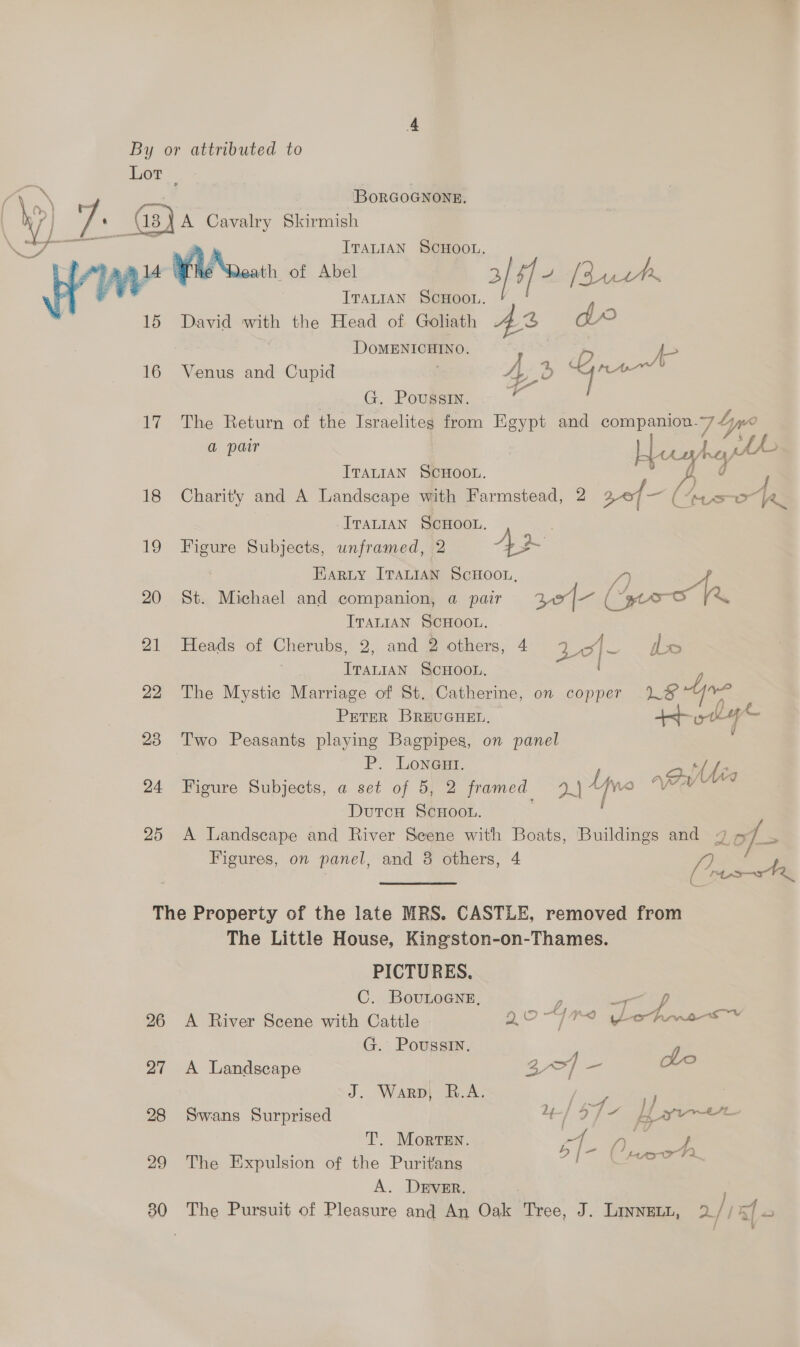 4
By or attributed to
LOT
BORGOGNONE.
7. 13 A Cavalry Skirmish
ITALIAN SCHOOL.
14 The Death of Abel 2/5/-
ITALIAN SCHOOL.
15 David with the Head of Goliath 43 do
DOMENICHINO.
16 Venus and Cupid 43
G. POUSSIN.
17 The Return of the Israelites from Egypt and companion- 7 Gns
a pair
ITALIAN SCHOOL.
18 Charity and A Landscape with Farmstead, 2 20/- Crook
ITALIAN SCHOOL.
19 Figure Subjects, unframed, 2 42
EARLY ITALIAN SCHOOL,
20 St. Michael and companion, a pair 20/- Crook
ITALIAN SCHOOL.
21 Heads of Cherubs, 2, and 2 others, 4 30/- do
ITALIAN SCHOOL.
22 The Mystic Marriage of St. Catherine, on copper 28 Gns
PETER BREUGHEL.
23 Two Peasants playing Bagpipes, on panel
P. LONGHI.
24 Figure Subjects, a set of 5, 2 framed 21 Gns
DUTCH SCHOOL.
25 A Landscape and River Scene with Boats, Buildings and
Figures, on panel, and 3 others, 4 Crook
The Property of the late MRS. CASTLE, removed from
The Little House, Kingston-on-Thames.
PICTURES.
C. BOULOGNE,
26 A River Scene with Cattle 20 Gns Johnson
G. POUSSIN.
27 A Landscape 30/- do
J. WARD, R.A.
28 Swans Surprised 4/5/-
T. MORTEN.
29 The Expulsion of the Puritans 5/- Crook
A. DEVER.
30 The Pursuit of Pleasure and An Oak Tree, J. LINNELL, 2/15/-